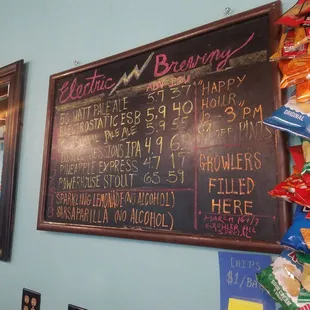 Electric Brewing
ABV IBU
50 WATT PALE ALE 5.7 37
ELECTROSTATIC ESB 5.9 40
PALE ALE 5.9 55
SESSIONS IPA 4.9 62
PINEAPPLE EXPRESS 4.7 17
POWERHOUSE STOUT 6.5 59
SPARKLING LEMONADE (NO ALCOHOL)
SARSAPARILLA (NO ALCOHOL)
"HAPPY
HOUR"
12-3PM
OFF PINTS
GROWLERS
FILLED
HERE
MARCH
CHIPS
$1/BAG